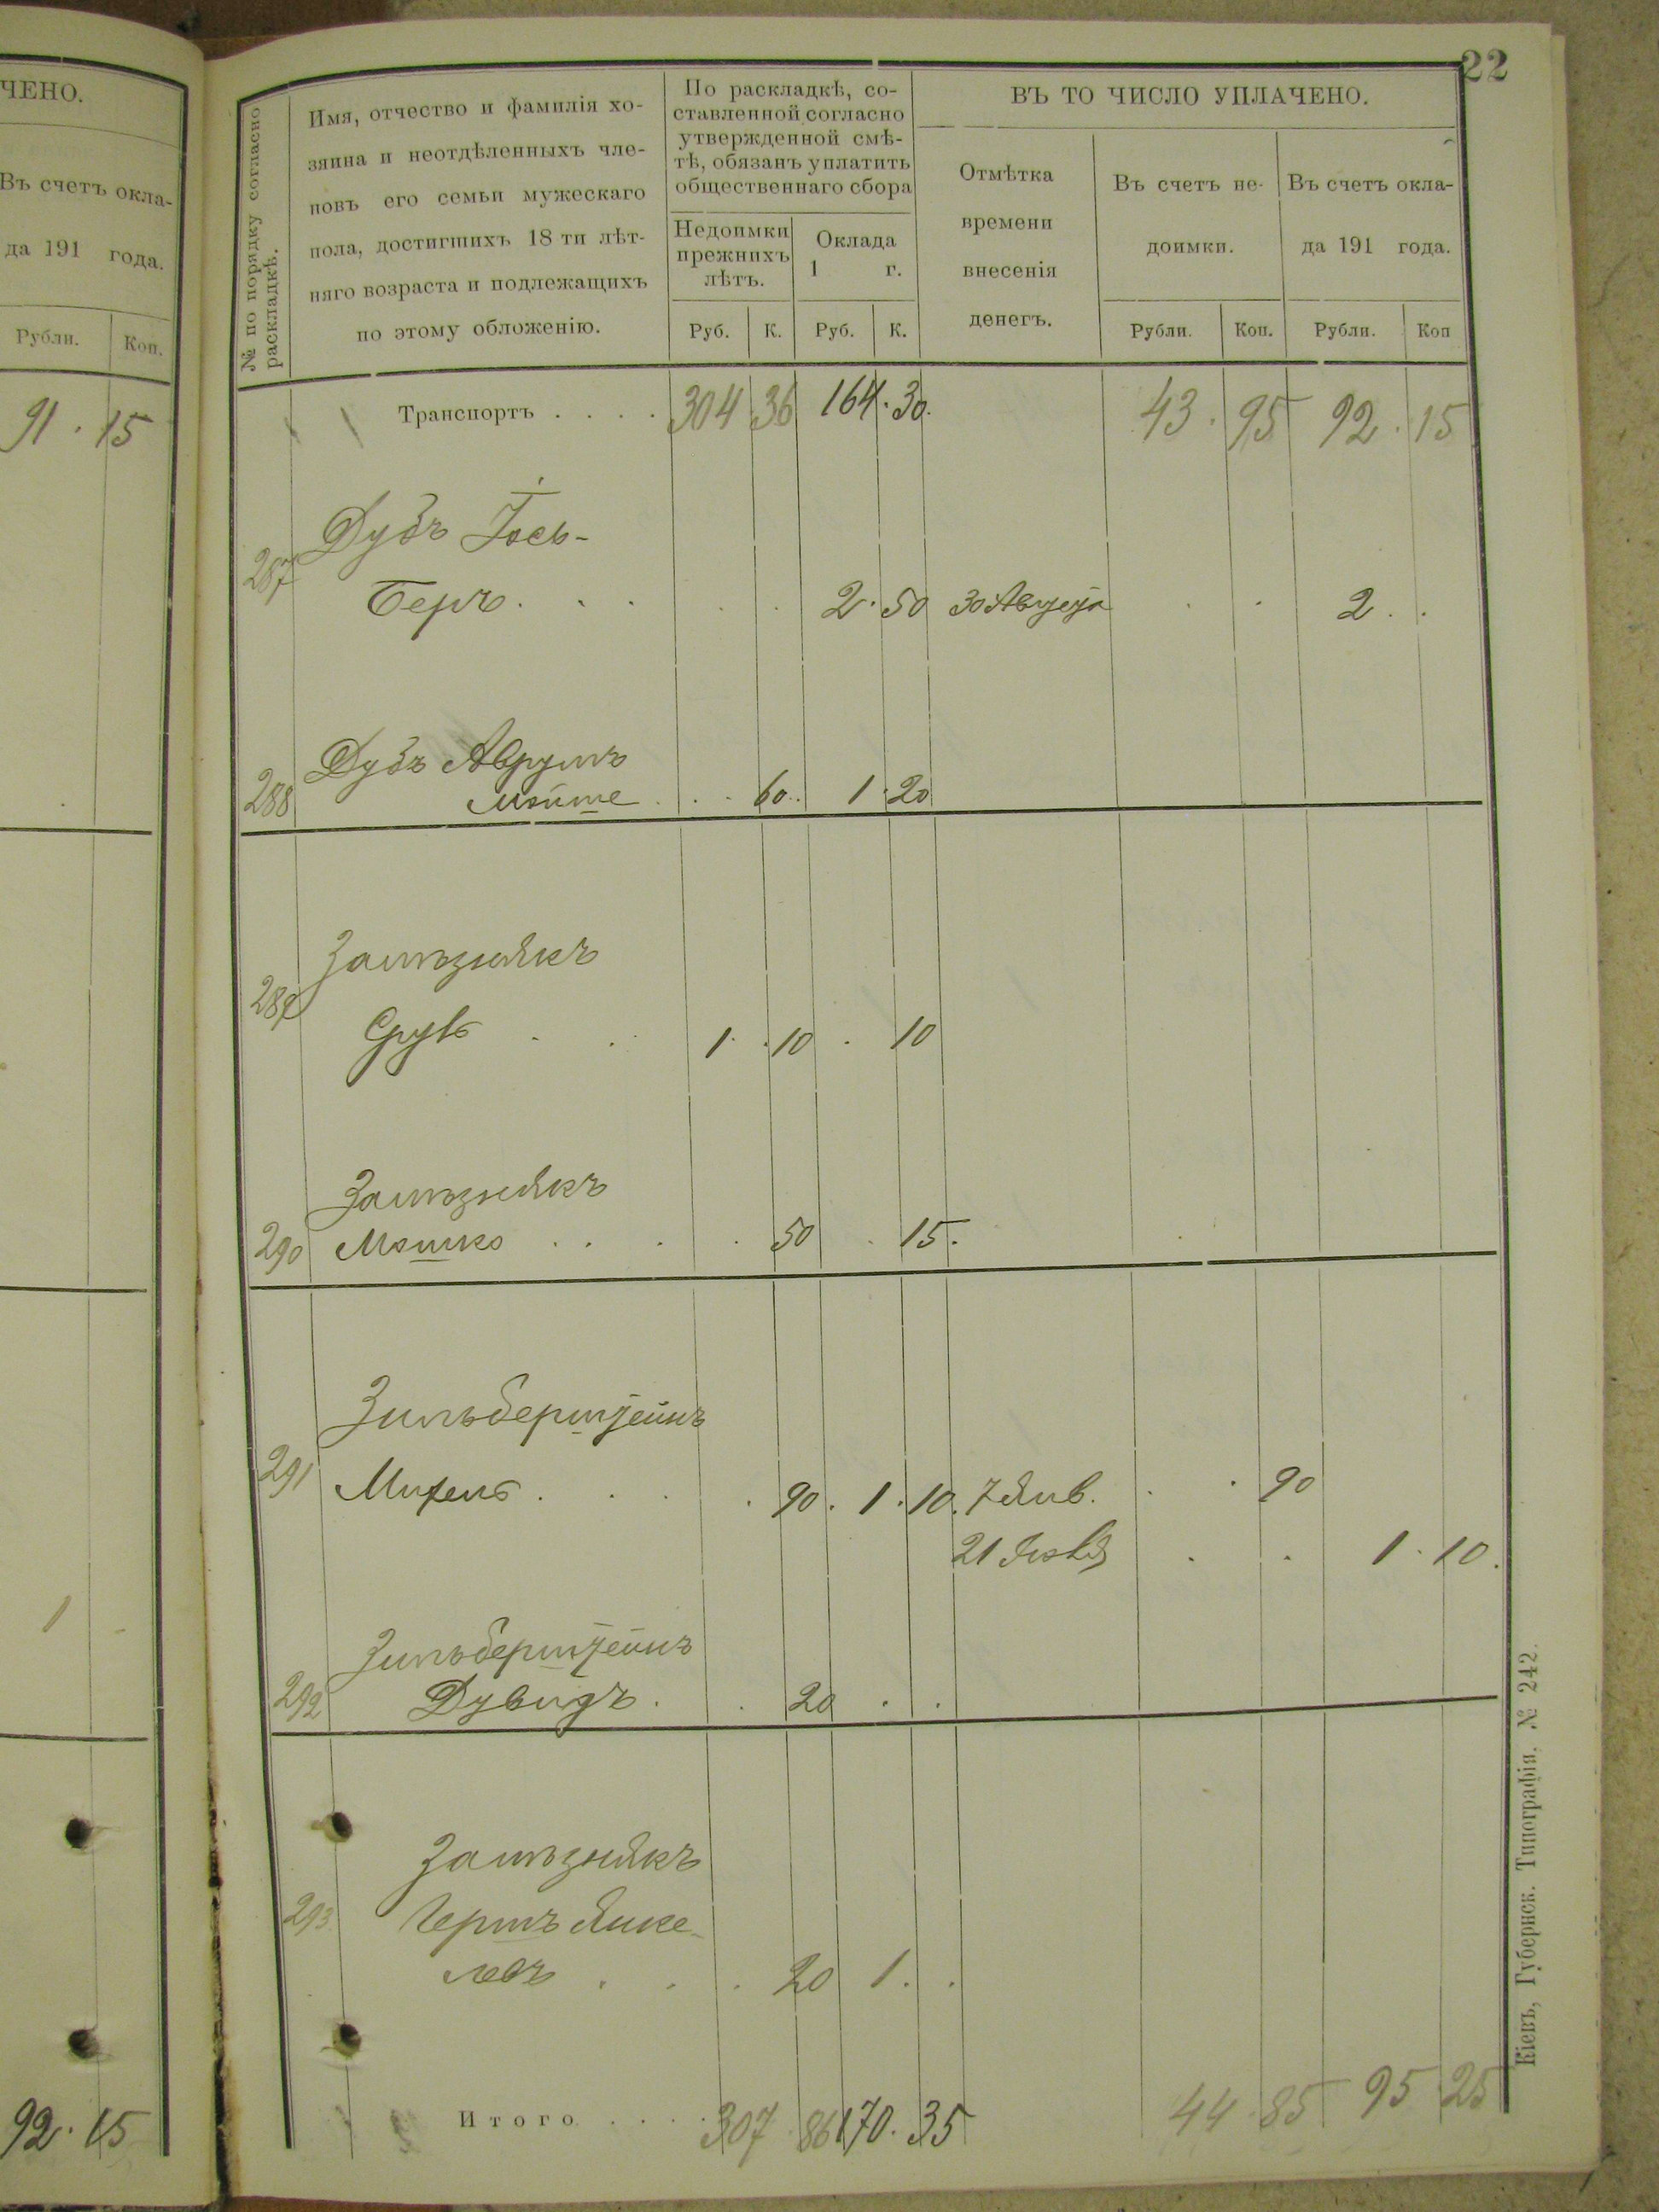 ЧЕНО.
Въ счетъ окла-
да 191 года.
Рубли. Коп.
91 . 15
1 -
92 . 15
22
№ по порядку согласно раскладкѣ.
Имя, отчество и фамилія хо-
зяина и неотдѣленныхъ чле-
новъ его семьи мужескаго
пола, достигшихъ 18 ти лѣт-
няго возраста и подлежащихъ
по этому обложенію.
По раскладкѣ, со-
ставленной согласно
утвержденной смѣ-
тѣ, обязанъ уплатить
общественнаго сбора
Недоимки
прежнихъ
лѣтъ.
Оклада
1 г.
Руб. К. Руб. К.
ВЪ ТО ЧИСЛО УПЛАЧЕНО.
Отмѣтка
времени
внесенія
денегъ.
Въ счетъ не-
доимки.
Въ счетъ окла-
да 191 года.
Рубли. Коп. Рубли. Коп
Транспортъ . . . . 304 36 164 . 30. 43 . 95 92 . 15
Дубъ Іось-
287 Беръ . . . . . 2 . 50 30 Августа . . 2 . .
Дубъ Аврумъ
288 Мойше . . . 60 . . 1 . 20
Зализнякъ
289 Сруль . . 1 . . 10 . 10
Зализнякъ
290 Мошко . . . . 50 . 15 .
Зильберштейнъ
291 Михель . . . . 90 . 1 . 10 . 7 Янв. . . 90
21 . . 1 . 10 .
Зильберштейнъ
292 Дувидъ . . 20 . .
Зализнякъ
293 Гершъ Янке-
левъ . . . 20 1 . .
Итого . . . . 307 . 86 170 . 35 44 . 85 95 25
Кіевъ, Губернск. Типографія. № 242.